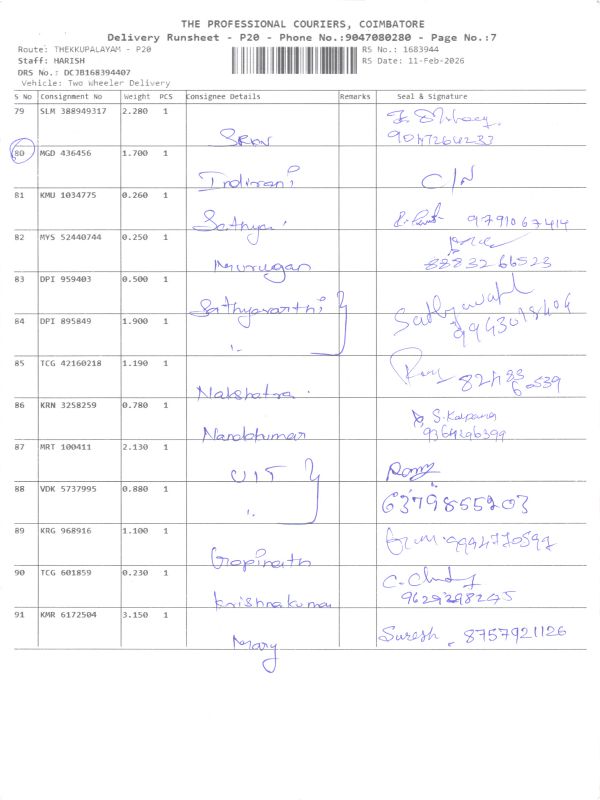 THE PROFESSIONAL COURIERS, COIMBATORE
Delivery Runsheet - P20 - Phone No.:9047080280 - Page No.:7
Route: THEKKUPALAYAM - P20 RS No.: 1683944
Staff: HARISH RS Date: 11-Feb-2026
DRS No.: DCJB168394407
Vehicle: Two Wheeler Delivery
S No Consignment No Weight PCS Consignee Details Remarks Seal & Signature
79 SLM 388949317 2.280 1
SRKV
80 MGD 436456 1.700 1
Indirani C/N
81 KMU 1034775 0.260 1
Sathya 9791067414
82 MYS 52440744 0.250 1
Murugan 8883266523
83 DPI 959403 0.500 1
Sathyavarthi
84 DPI 895849 1.900 1
"
85 TCG 42160218 1.190 1
Nakshatra
86 KRN 3258259 0.780 1 S. Kalpana
Nandakumar 9364296399
87 MRT 100411 2.130 1
UIT
88 VDK 5737995 0.880 1 6379855203
"
89 KRG 968916 1.100 1
Gopinath
90 TCG 601859 0.230 1
Krishnakumar
91 KMR 6172504 3.150 1 Suresh. 8757921126
Mary